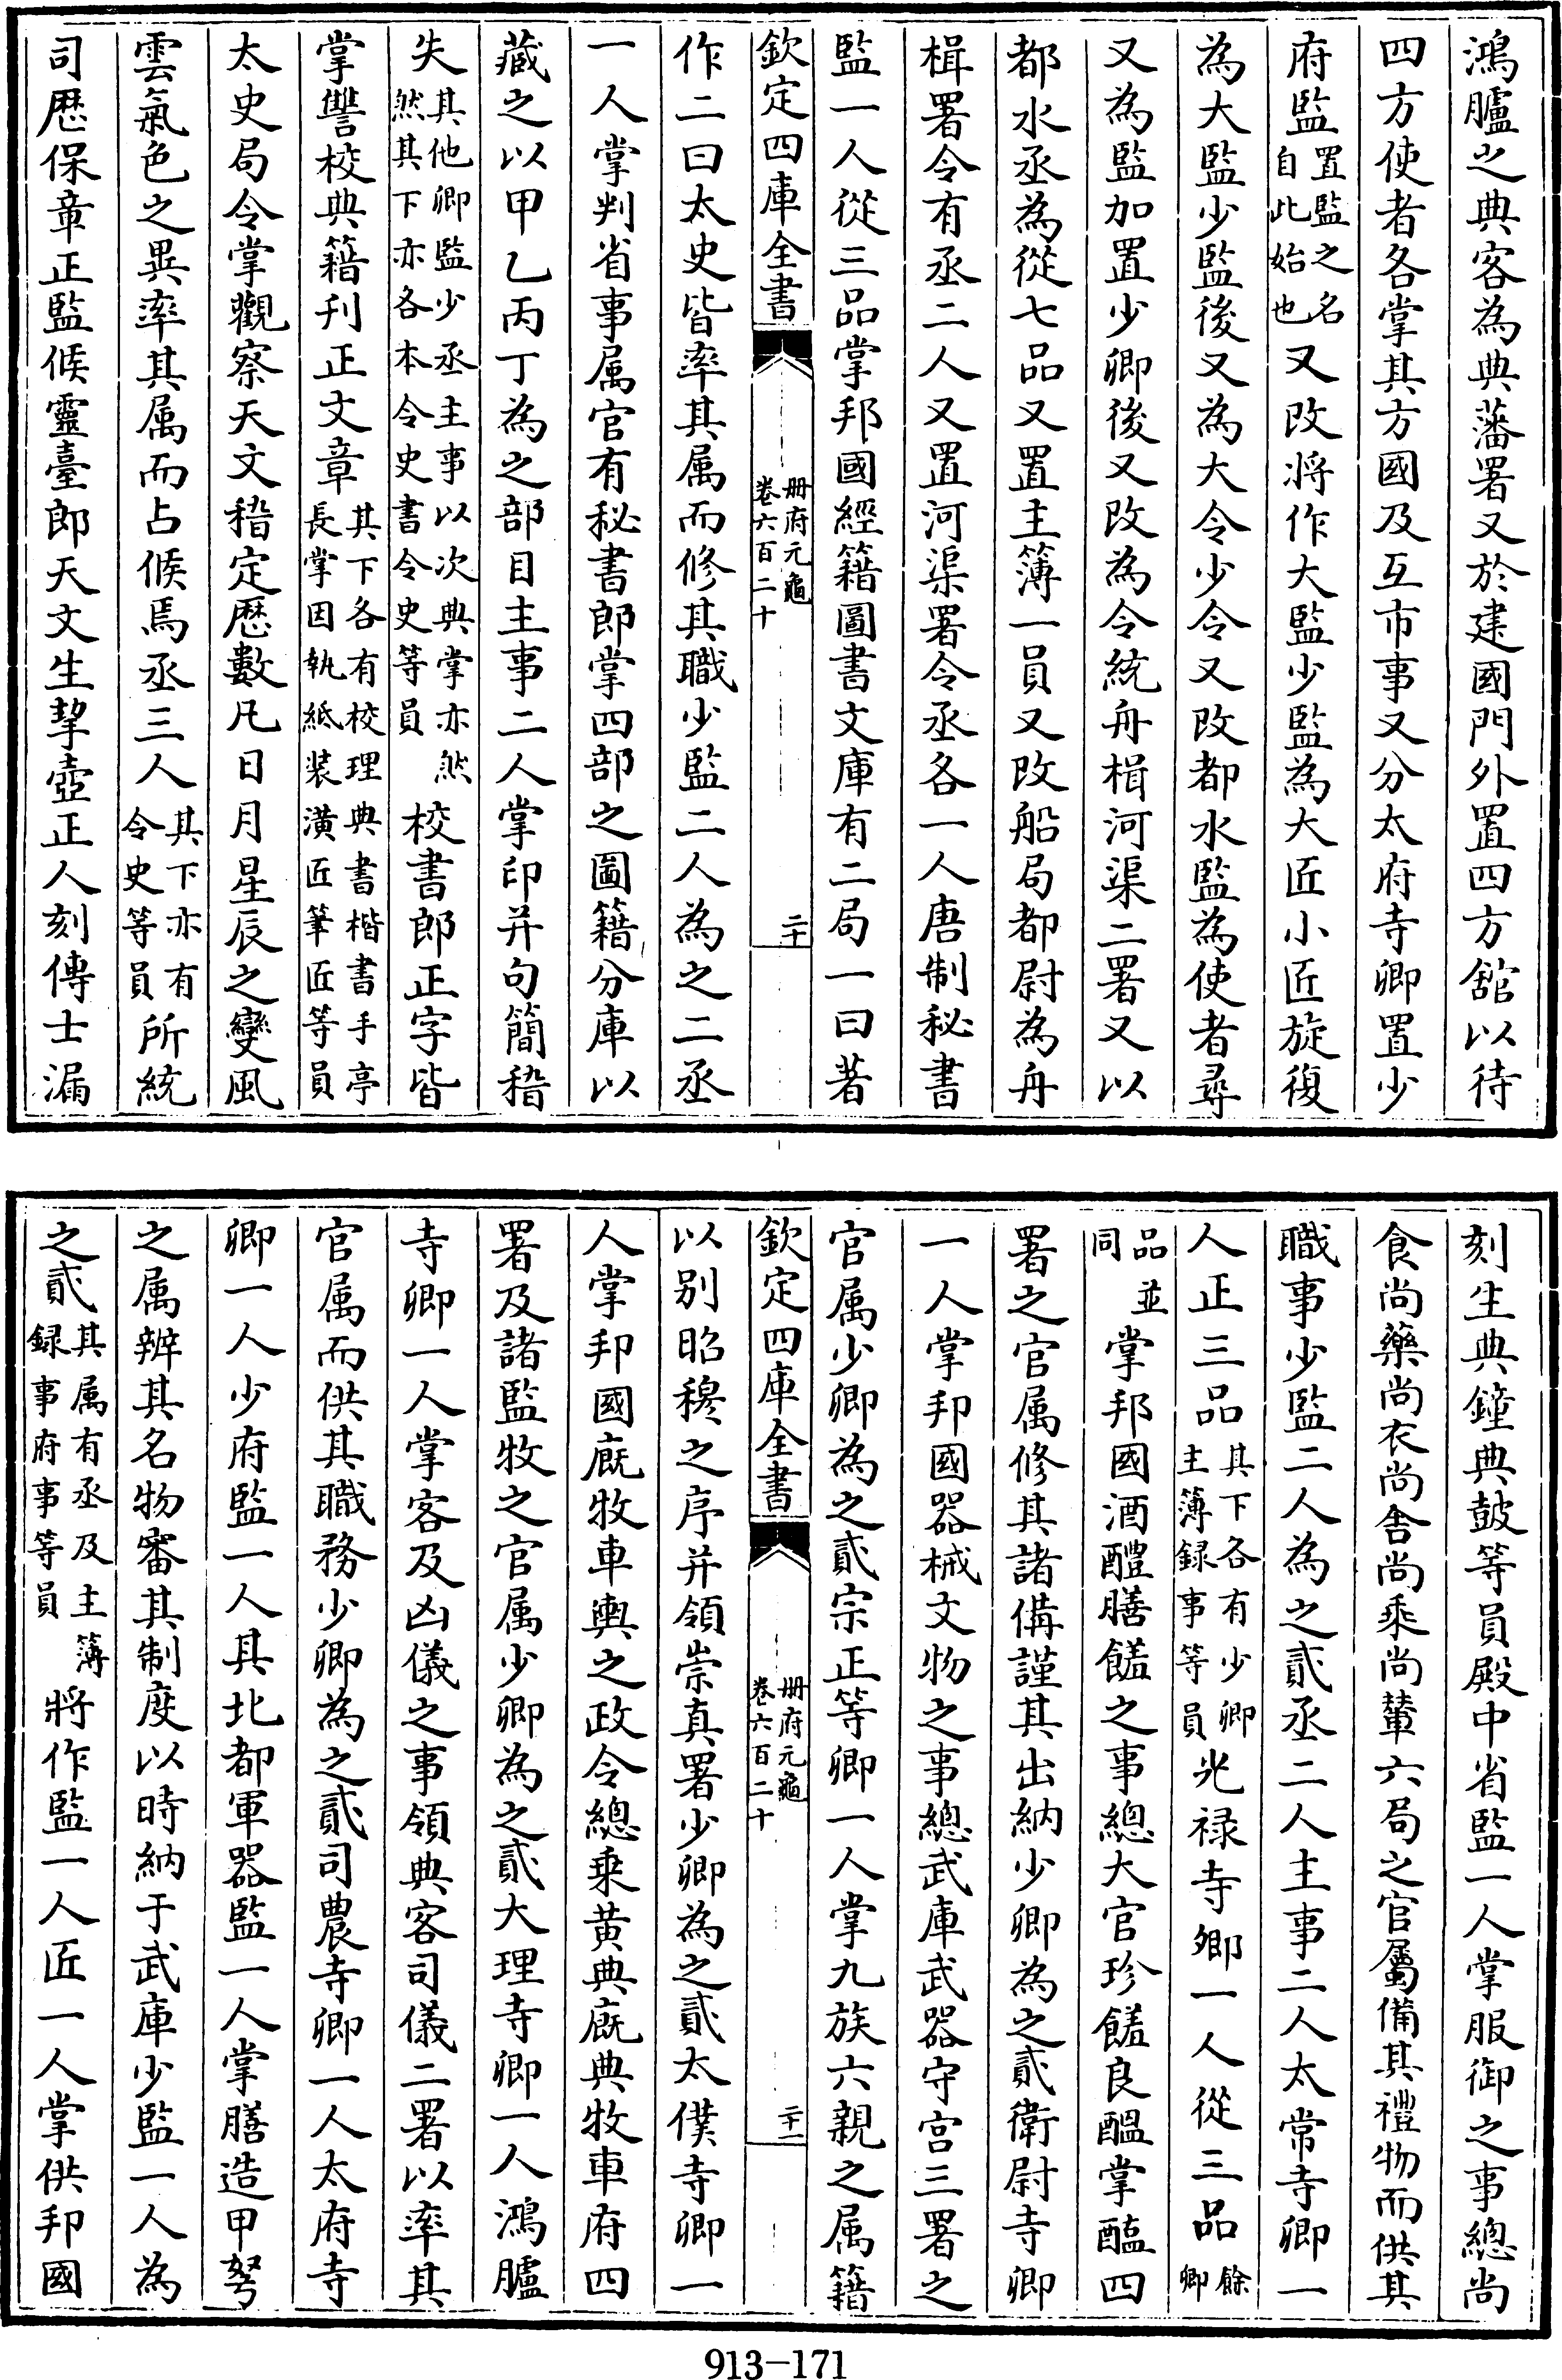 鴻臚之典客為典蕃署又於建國門外置四方館以待
四方使者各掌其方國及互市事又分太府寺卿置少
府監置監之名自此始也又改將作大監少監為大匠小匠旋復
為大監少監後又為大令少令又改都水監為使者尋
又為監加置少卿後又改為令統舟楫河渠二署又以
都水丞為從七品又置主簿一員又改船局都尉為舟
楫署令有丞二人又置河渠署令丞各一人唐制秘書
監一人從三品掌邦國經籍圖書文庫有二局一曰著
欽定四庫全書
冊府元龜
卷六百二十
二十
作二曰太史皆率其属而修其職少監二人為之二丞
一人掌判省事属官有秘書郎掌四部之圖籍分庫以
藏之以甲乙丙丁為之部目主事二人掌印并句簡稽
失其他卿監少丞主事以次典掌亦然然其下亦各本令史書令史等員校書郎正字皆
掌讐校典籍刊正文章其下各有校理典書楷書手亭長掌因執紙装潢匠筆匠等員
太史局令掌觀察天文稽定歴數凡日月星辰之變風
雲氣色之異率其属而占候焉丞三人其下亦有令史等員所統
司歴保章正監候靈臺郎天文生挈壺正人刻傳士漏
刻生典鐘典鼓等員殿中省監一人掌服御之事總尚
食尚藥尚衣尚舍尚乘尚輦六局之官屬備其禮物而供其
職事少監二人為之貳丞二人主事二人太常寺卿一
人正三品其下各有少卿主簿録事等員光禄寺卿一人從三品餘卿
品並同掌邦國酒醴膳饈之事總大官珍饈良醞掌醢四
署之官属修其諸備謹其出納少卿為之貳衛尉寺卿
一人掌邦國器械文物之事總武庫武器守宫三署之
官属少卿為之貳宗正等卿一人掌九族六親之属籍
欽定四庫全書
冊府元龜
卷六百二十
二十一
以别昭穆之序并領崇真署少卿為之貳太僕寺卿一
人掌邦國厩牧車輿之政令總乗黄典厩典牧車府四
署及諸監牧之官属少卿為之貳大理寺卿一人鴻臚
寺卿一人掌客及凶儀之事領典客司儀二署以率其
官属而供其職務少卿為之貳司農寺卿一人太府寺
卿一人少府監一人其北都軍器監一人掌膳造甲弩
之属辨其名物審其制度以時納于武庫少監一人為
之貳其属有丞及主簿録事府事等員將作監一人匠一人掌供邦國
913-171